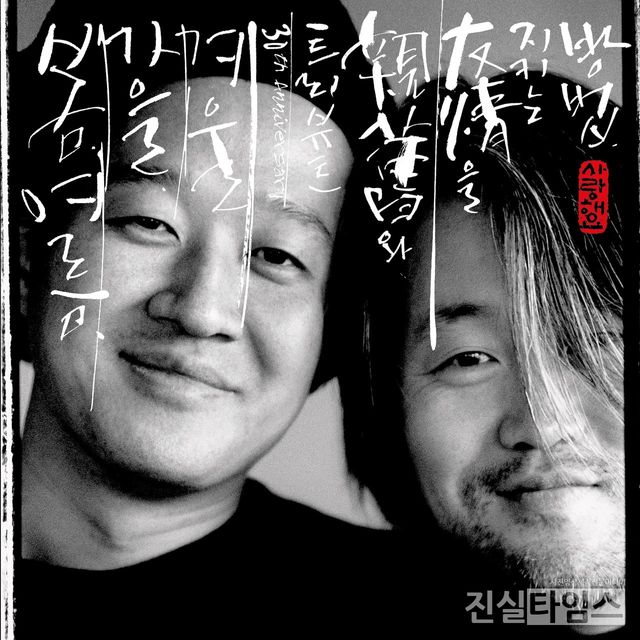 봄.여름.
가을.
겨울
30th Anniversary
트리뷰트
友情을
지키는
방법.
진실타임스